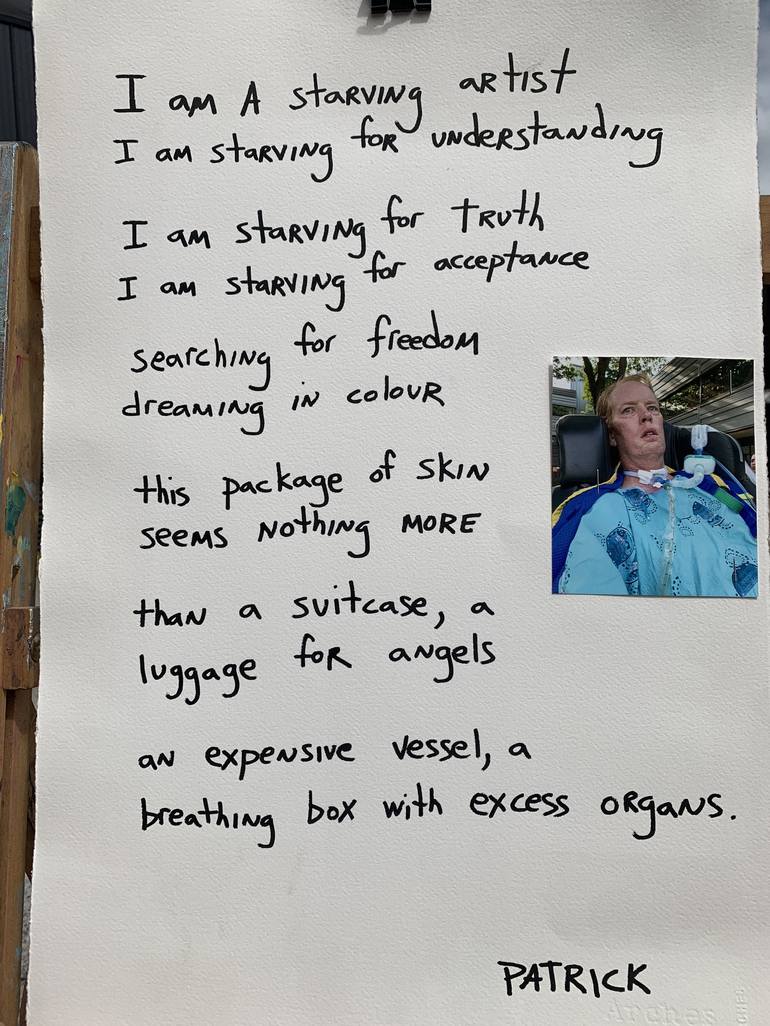 I am A starving artist
I am starving for understanding
I am starving for truth
I am starving for acceptance
searching for freedom
dreaming in colour
this package of skin
seems nothing more
than a suitcase, a
luggage for angels
an expensive vessel, a
breathing box with excess organs.
PATRICK
Arches